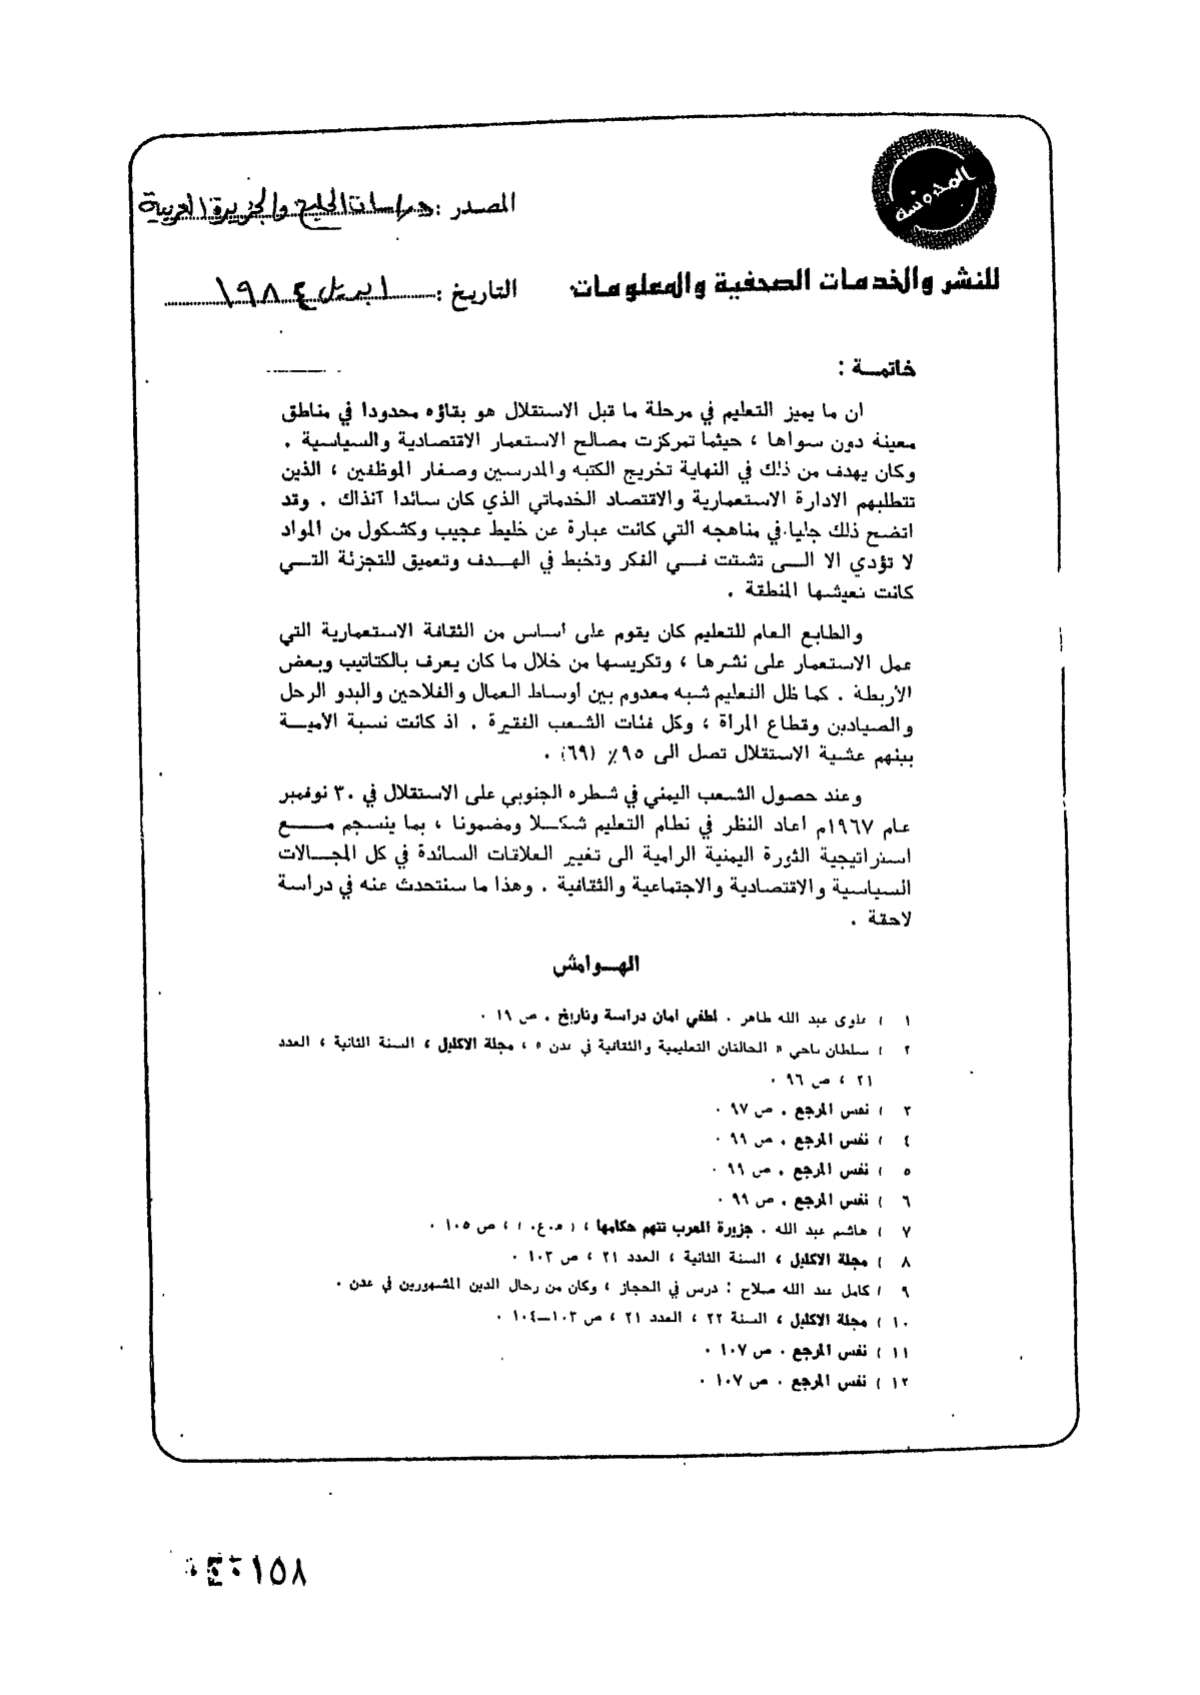 المحروسة
المصدر : دراسات الخليج والجزيرة العربية
للنشر والخدمات الصحفية والمعلومات
التاريخ : ابريل ١٩٨٤
خاتمــة :
ان ما يميز التعليم في مرحلة ما قبل الاستقلال هو بقاؤه محدودا في مناطق
معينة دون سواها ، حيثما تمركزت مصالح الاستعمار الاقتصادية والسياسية .
وكان يهدف من ذلك في النهاية تخريج الكتبه والمدرسين وصغار الموظفين ، الذين
تتطلبهم الادارة الاستعمارية والاقتصاد الخدماتي الذي كان سائدا آنذاك . وقد
اتضح ذلك جليا في مناهجه التي كانت عبارة عن خليط عجيب وكشكول من المواد
لا تؤدي الا الــى تشتت فــي الفكر وتخبط في الهــدف وتعميق للتجزئة التــي
كانت تعيشها المنطقة .
والطابع العام للتعليم كان يقوم على اساس من الثقافة الاستعمارية التي
عمل الاستعمار على نشرها ، وتكريسها من خلال ما كان يعرف بالكتاتيب وبعض
الأربطة . كما ظل التعليم شبه معدوم بين اوساط العمال والفلاحين والبدو الرحل
والصيادين وقطاع المراة ، وكل فئات الشعب الفقيرة . اذ كانت نسبة الأميــة
بينهم عشية الاستقلال تصل الى ٩٥٪ (٦٩) .
وعند حصول الشعب اليمني في شطره الجنوبي على الاستقلال في ٣٠ نوفمبر
عام ١٩٦٧م اعاد النظر في نظام التعليم شكــلا ومضمونا ، بما ينسجم مــع
استراتيجية الثورة اليمنية الرامية الى تغيير العلاقات السائدة في كل المجــالات
السياسية والاقتصادية والاجتماعية والثقافية . وهذا ما سنتحدث عنه في دراسة
لاحقة .
الهــوامش
١ ) علوي عبد الله طاهر . لطفي امان دراسة وتاريخ . ص ١٩ .
٢ ) سلطان ناجي « الحالتان التعليمية والثقافية في عدن » ، مجلة الاكليل ، السنة الثانية ، العدد
٢١ ، ص ٩٦ .
٣ ) نفس المرجع . ص ٩٧ .
٤ ) نفس المرجع . ص ٩٩ .
٥ ) نفس المرجع . ص ٩٩ .
٦ ) نفس المرجع . ص ٩٩ .
٧ ) هاشم عبد الله . جزيرة العرب تتهم حكامها ، ( م.ع. ) ، ص ١٠٥ .
٨ ) مجلة الاكليل ، السنة الثانية ، العدد ٢١ ، ص ١٠٣ .
٩ ) كامل عبد الله صلاح : درس في الحجاز ، وكان من رجال الدين المشهورين في عدن .
١٠ ) مجلة الاكليل ، السنة ٢٢ ، العدد ٢١ ، ص ١٠٣ــ١٠٤ .
١١ ) نفس المرجع . ص ١٠٧ .
١٢ ) نفس المرجع . ص ١٠٧ .
١٥٨